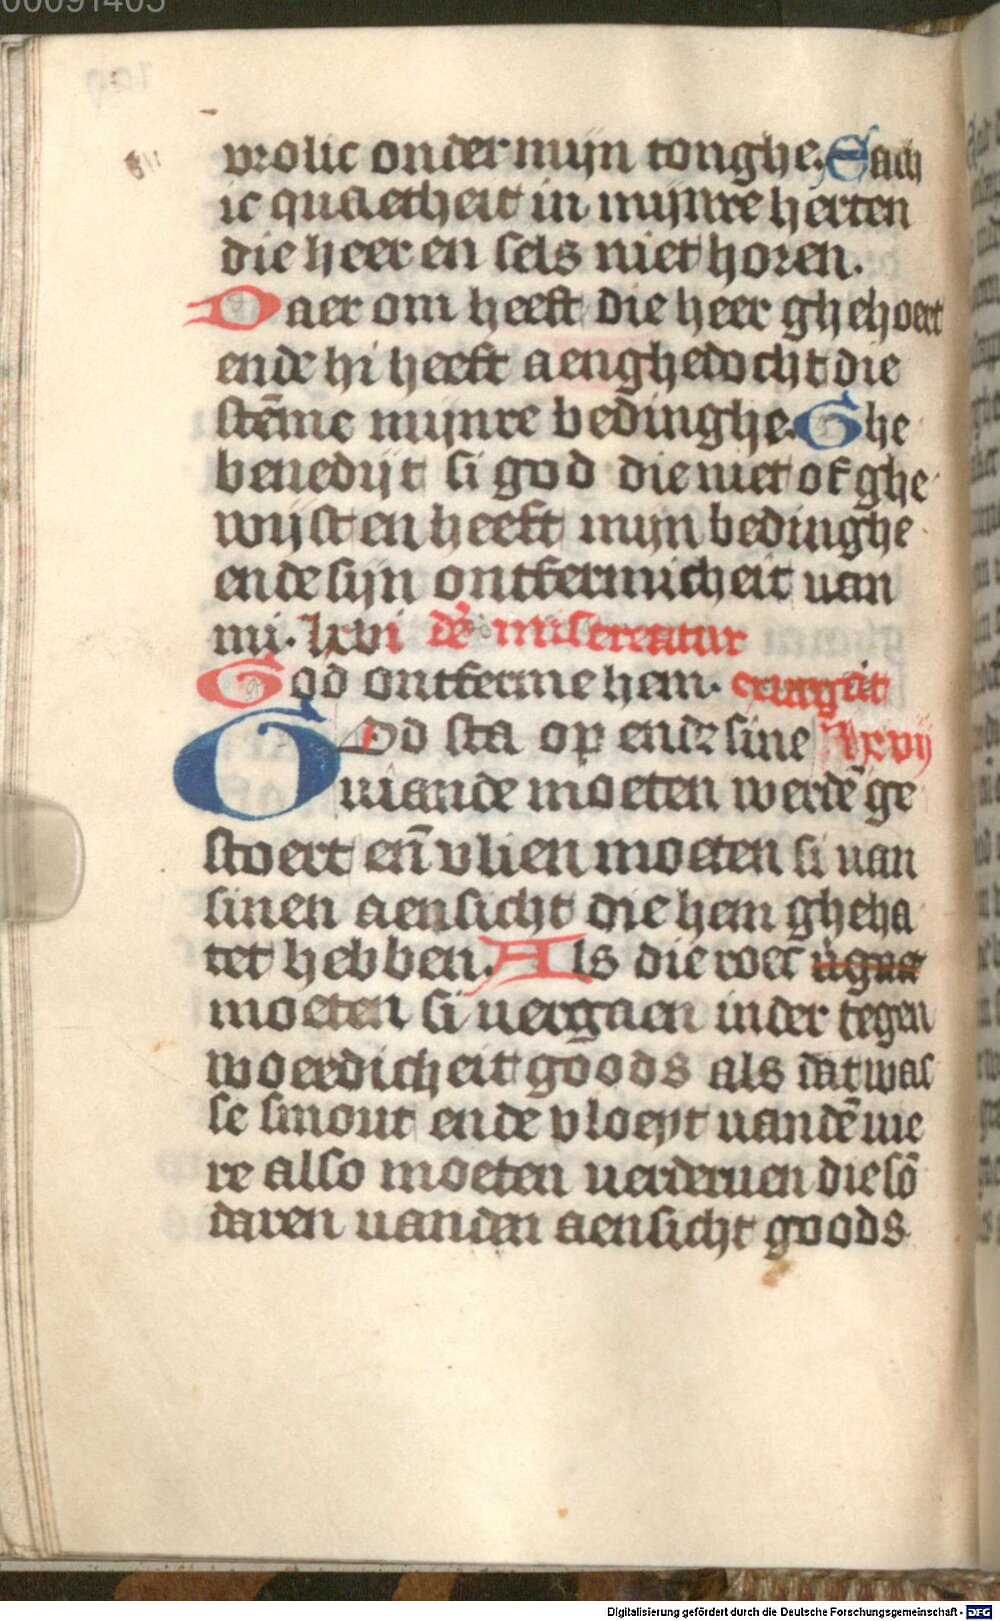 00091405
vrolic onder mijn tonghe. Sach
ic quaetheit in mijnre herten
die heer en sels niet horen.
Daer om heeft die heer ghehoert
ende hi heeft aenghedocht die
stēme mijnre bedinghe. Ghe
benedijt si god die niet of ghe
wijst en heeft mijn bedinghe
ende sijn ontfermicheit van
mi. lxvi de᷒ misereatur
God ontferme hem. exurgat
God sta op ende sine lxvij
viande moeten werdē ge
stoert en̄ vlien moeten si van
sinen aensicht die hem gheha
tet hebben. Als die roec
moeten si vergaen in der tegen
woerdicheit goods als dat was
se smout ende vloeyt van dē vie
re also moeten verderuen die sō
daren van den aensicht goods
Digitalisierung gefördert durch die Deutsche Forschungsgemeinschaft - DFG